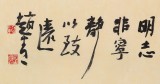 明志
非寧
靜
以致
遠